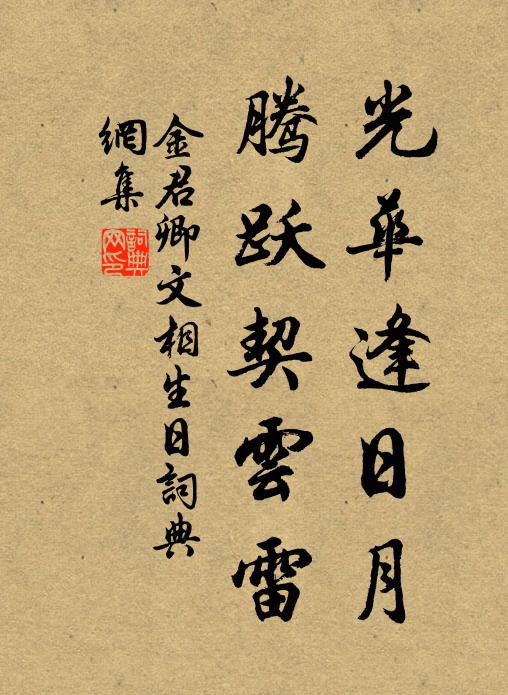 光華逢日月
騰跃契雲雷
金君卿文相生日詞典
網集
詞典網印